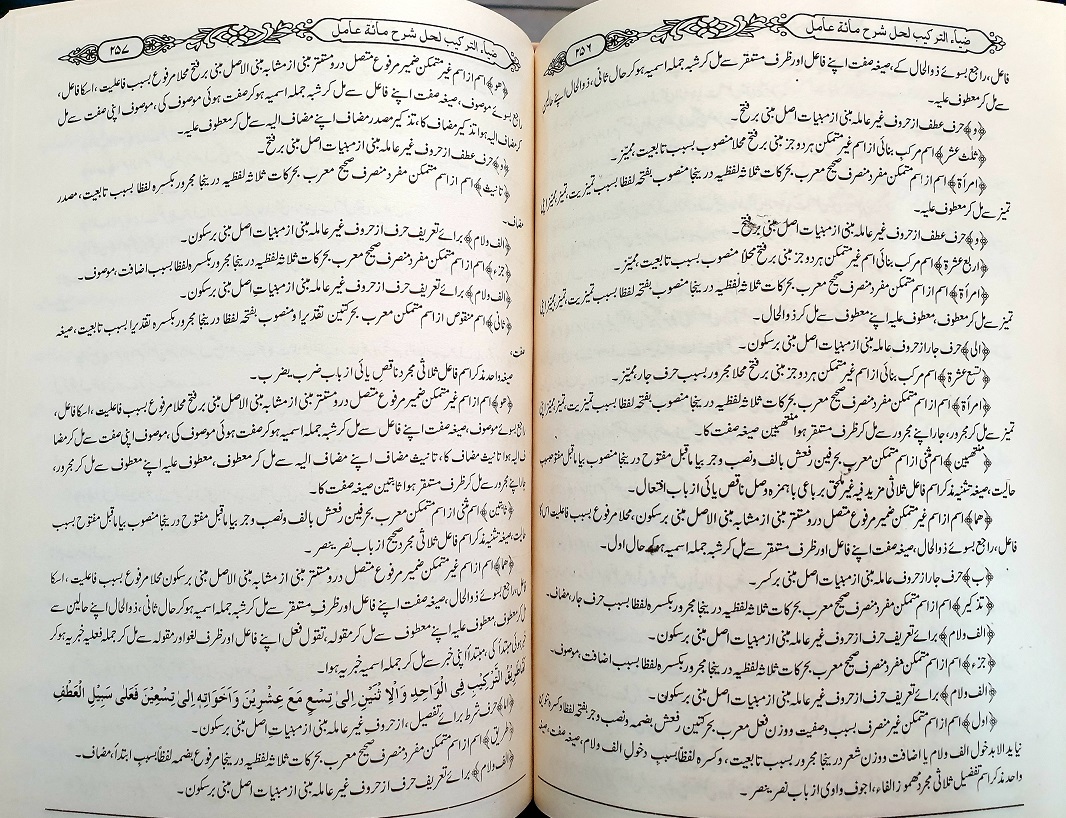 ضیاء الترکیب لحل شرح مائة عامل
۲۵۶
فاعل، راجع بسوئے ذوالحال کے، صیغہ صفت اپنے فاعل اور ظرف مستقر سے مل کر شبہ جملہ اسمیہ ہو کر حال ثانی، ذوالحال اپنے حالین
سے مل کر معطوف علیہ۔
﴿و﴾ حرف عطف از حروف غیر عاملہ مبنی از مبنیات اصل مبنی برفتح۔
﴿ثلث عشر﴾ اسم مرکب بنائی از اسم غیر متمکن ہر دو جز مبنی برفتح محلا منصوب بسبب تابعیت، ممیّز۔
﴿امرأة﴾ اسم از اسم متمکن مفرد منصرف صحیح معرب بحرکات ثلاثہ لفظیہ درینجا منصوب بفتحہ لفظا بسبب تمیزیت، تمیز، ممیّز اپنی
تمیز سے مل کر معطوف علیہ۔
﴿و﴾ حرف عطف از حروف غیر عاملہ مبنی از مبنیات اصل مبنی برفتح۔
﴿اربع عشرة﴾ اسم مرکب بنائی از اسم غیر متمکن ہر دو جز مبنی برفتح محلا منصوب بسبب تابعیت، ممیّز۔
﴿امرأة﴾ اسم از اسم متمکن مفرد منصرف صحیح معرب بحرکات ثلاثہ لفظیہ درینجا منصوب بفتحہ لفظا بسبب تمیزیت، تمیز، ممیّز اپنی
تمیز سے مل کر معطوف، معطوف علیہ اپنے معطوف سے مل کر ذوالحال۔
﴿الی﴾ حرف جار از حروف عاملہ مبنی از مبنیات اصل مبنی برسکون۔
﴿تسع عشرة﴾ اسم مرکب بنائی از اسم غیر متمکن ہر دو جز مبنی برفتح محلا مجرور بسبب حرف جار، ممیّز۔
﴿امرأة﴾ اسم از اسم متمکن مفرد منصرف صحیح معرب بحرکات ثلاثہ لفظیہ درینجا منصوب بفتحہ لفظا بسبب تمیزیت، تمیز، ممیّز اپنی
تمیز سے مل کر مجرور، جار اپنے مجرور سے مل کر ظرف مستقر ہوا منتهیین صیغہ صفت کا۔
﴿منتهیین﴾ اسم مثنی از اسم متمکن معرب بحرفین رفعش بالف ونصب وجر بیا ماقبل مفتوح درینجا منصوب بیا ماقبل مفتوح بسبب
حالیت، صیغہ تثنیہ مذکر اسم فاعل ثلاثی مزید فیہ غیر ملحق برباعی با ہمزہ وصل ناقص یائی از باب افتعال۔
﴿هما﴾ اسم از اسم غیر متمکن ضمیر مرفوع متصل درو مستتر مبنی از مشابہ مبنی الاصل مبنی برسکون، محلا مرفوع بسبب فاعلیت اس کا
فاعل، راجع بسوئے ذوالحال، صیغہ صفت اپنے فاعل اور ظرف مستقر سے مل کر شبہ جملہ اسمیہ ہو کر حال اول۔
﴿ب﴾ حرف جار از حروف عاملہ مبنی از مبنیات اصل مبنی برکسر۔
﴿تذکیر﴾ اسم از اسم متمکن مفرد منصرف صحیح معرب بحرکات ثلاثہ لفظیہ درینجا مجرور بکسرہ لفظا بسبب حرف جار، مضاف۔
﴿الف ولام﴾ برائے تعریف حرف از حروف غیر عاملہ مبنی از مبنیات اصل مبنی برسکون۔
﴿جزء﴾ اسم از اسم متمکن مفرد منصرف صحیح معرب بحرکات ثلاثہ لفظیہ درینجا مجرور بکسرہ لفظا بسبب اضافت، موصوف۔
﴿الف ولام﴾ برائے تعریف حرف از حروف غیر عاملہ مبنی از مبنیات اصل مبنی برسکون۔
﴿اول﴾ اسم از اسم متمکن غیر منصرف بسبب وصفیت ووزن فعل معرب بحرکتین رفعش بضمہ ونصب وجر بفتحہ لفظا وکسرہ وتنوین
نیاید الا بدخول الف ولام یا اضافت ووزن شعر درینجا مجرور بسبب تابعیت، وکسرہ لفظا بسبب دخول الف ولام، صیغہ صفت، صیغہ
واحد مذکر اسم تفضیل ثلاثی مجرد مہموز الفاء، اجوف واوی از باب نصر ینصر۔
ضیاء الترکیب لحل شرح مائة عامل
۲۵۷
﴿هو﴾ اسم از اسم غیر متمکن ضمیر مرفوع متصل درو مستتر مبنی از مشابہ مبنی الاصل مبنی برفتح محلا مرفوع بسبب فاعلیت، اسکا فاعل،
راجع بسوئے موصوف، صیغہ صفت اپنے فاعل سے مل کر شبہ جملہ اسمیہ ہو کر صفت ہوئی موصوف کی، موصوف اپنی صفت سے مل
کر مضاف الیہ ہوا تذکیر مضاف کا، تذکیر مصدر مضاف اپنے مضاف الیہ سے مل کر معطوف علیہ۔
﴿و﴾ حرف عطف از حروف غیر عاملہ مبنی از مبنیات اصل مبنی برفتح۔
﴿تانیث﴾ اسم از اسم متمکن مفرد منصرف صحیح معرب بحرکات ثلاثہ لفظیہ درینجا مجرور بکسرہ لفظا بسبب تابعیت، مصدر
مضاف۔
﴿الف ولام﴾ برائے تعریف حرف از حروف غیر عاملہ مبنی از مبنیات اصل مبنی برسکون۔
﴿جزء﴾ اسم از اسم متمکن مفرد منصرف صحیح معرب بحرکات ثلاثہ لفظیہ درینجا مجرور بکسرہ لفظا بسبب اضافت، موصوف۔
﴿الف ولام﴾ برائے تعریف حرف از حروف غیر عاملہ مبنی از مبنیات اصل مبنی برسکون۔
﴿ثانی﴾ اسم منقوص از اسم متمکن معرب بحرکتین تقدیرا ومنصوب بفتحہ لفظا درینجا مجرور بکسرہ تقدیرا بسبب تابعیت، صیغہ
صفت،
صیغہ واحد مذکر اسم فاعل ثلاثی مجرد ناقص یائی از باب ضرب یضرب۔
﴿هو﴾ اسم از اسم غیر متمکن ضمیر مرفوع متصل درو مستتر مبنی از مشابہ مبنی الاصل مبنی برفتح محلا مرفوع بسبب فاعلیت، اسکا فاعل،
راجع بسوئے موصوف، صیغہ صفت اپنے فاعل سے مل کر شبہ جملہ اسمیہ ہو کر صفت ہوئی موصوف کی، موصوف اپنی صفت سے مل کر مضا
ف الیہ ہوا تانیث مضاف کا، تانیث مضاف اپنے مضاف الیہ سے مل کر معطوف، معطوف علیہ اپنے معطوف سے مل کر مجرور،
جار اپنے مجرور سے مل کر ظرف مستقر ہوا ثابتین صیغہ صفت کا۔
﴿ثابتین﴾ اسم مثنی از اسم متمکن معرب بحرفین رفعش بالف ونصب وجر بیا ماقبل مفتوح درینجا منصوب بیا ماقبل مفتوح بسبب
حالیت، صیغہ تثنیہ مذکر اسم فاعل ثلاثی مجرد صحیح از باب نصر ینصر۔
﴿هما﴾ اسم از اسم غیر متمکن ضمیر مرفوع متصل درو مستتر مبنی از مشابہ مبنی الاصل مبنی برسکون محلا مرفوع بسبب فاعلیت، اسکا
فاعل، راجع بسوئے ذوالحال، صیغہ صفت اپنے فاعل اور ظرف مستقر سے مل کر شبہ جملہ اسمیہ ہو کر حال ثانی، ذوالحال اپنے حالین سے
مل کر معطوف، معطوف علیہ اپنے معطوف سے مل کر مقولہ، تقول فعل اپنے فاعل اور ظرف لغو اور مقولہ سے مل کر جملہ فعلیہ خبریہ ہو کر
خبر ہوئی مبتدأ کی، مبتدأ اپنی خبر سے مل کر جملہ اسمیہ خبریہ ہوا۔
اَمَّا طَرِيْقُ التَّرْكِيْبِ فِى الْوَاحِدِ وَالْاِثْنَيْنِ اِلىٰ تِسْعٍ مَعَ عِشْرِيْنَ وَاَخَوَاتِهٖ اِلىٰ تِسْعِيْنَ فَعَلىٰ سَبِيْلِ الْعَطْفِ
﴿اما﴾ حرف شرط برائے تفصیل، از حروف غیر عاملہ مبنی از مبنیات اصل مبنی برسکون۔
﴿طریق﴾ اسم از اسم متمکن مفرد منصرف صحیح معرب بحرکات ثلاثہ لفظیہ درینجا مرفوع بضمہ لفظا بسبب ابتدأ، مضاف۔
﴿الف ولام﴾ برائے تعریف حرف از حروف غیر عاملہ مبنی از مبنیات اصل مبنی برسکون۔